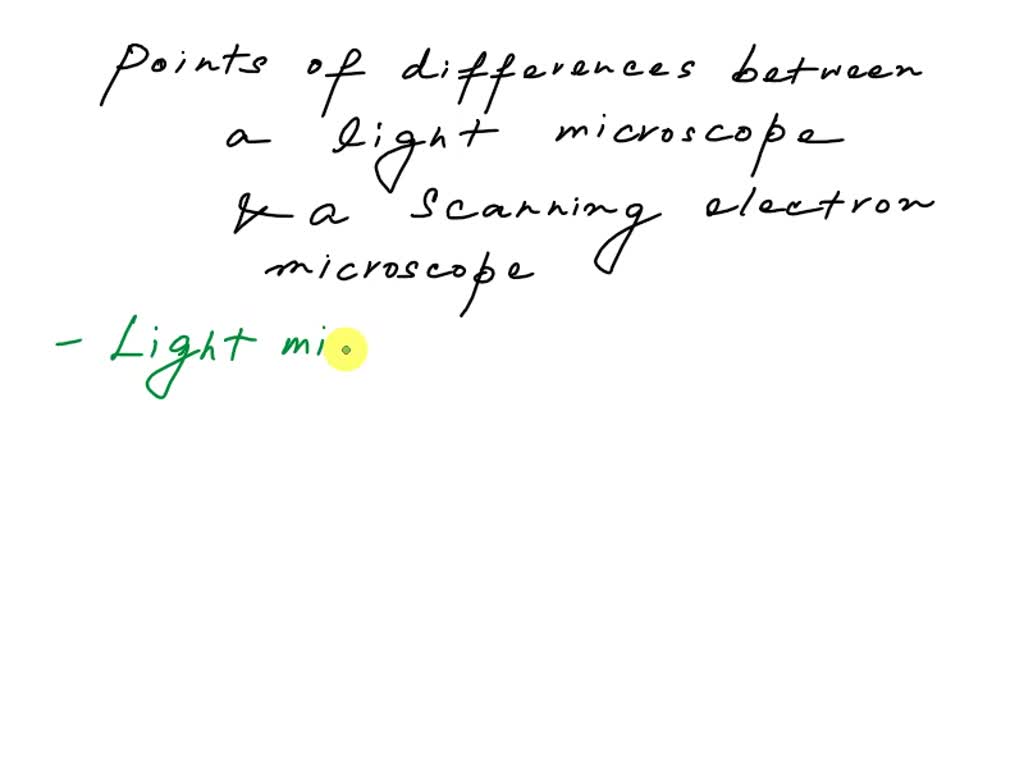 Points of differences between
a light microscope
& a scanning electron
microscope
- Light mi